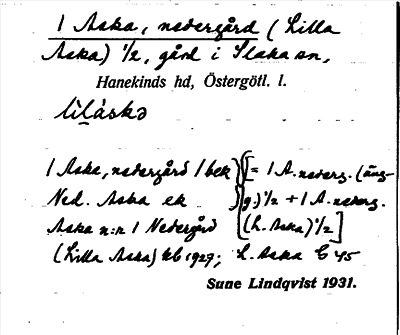 1 Aska, nedergård (Lilla
Aska) ½, gård i Slaka sn,
Hanekinds hd, Östergötl. l.
lìláskə
1 Aska, nedergård 1 bek } [= 1 A. nederg. (äng-
Ned. Aska ek } g.) ½ + 1 A. nederg.
Aska n:r 1 Nedergård (L. Aska) ½]
(Lilla Aska) kb 1929; L. Aska E 45
Sune Lindqvist 1931.